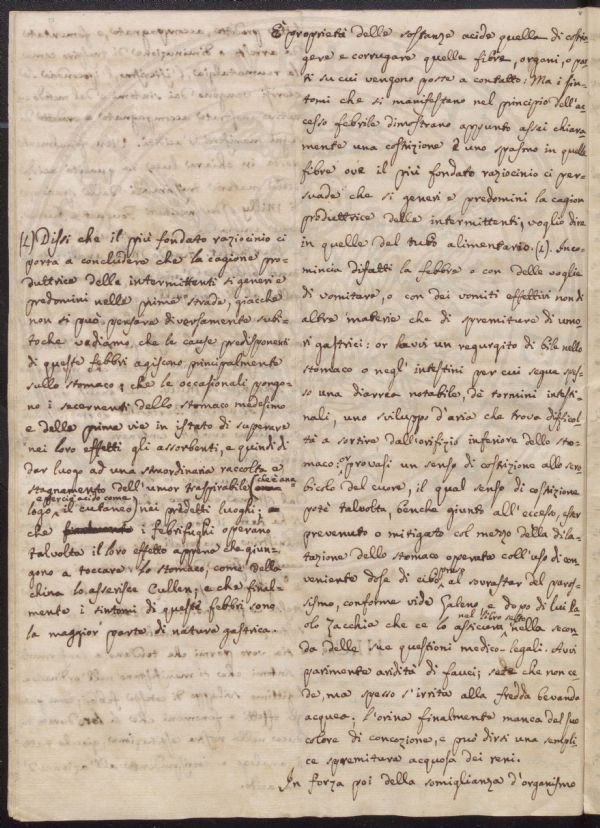 È proprietà delle sostanze acide quella di costrin-
gere e corrugare quelle fibre, organi, o par-
ti su cui vengono poste a contatto: Ma i sin-
tomi che si manifestano nel principio dell'ac-
cesso febrile dimostrano appunto assai chiara-
mente una costizione e uno spasmo in quelle
fibre ove il più fondato raziocinio ci per-
suade che si generi e predomini la cagion
produttrice delle intermittenti, voglio dire
in quelle del tubo alimentario. (L). Inco-
mincia difatti la febbre o con delle voglie
di vomitare, o con dei vomiti effettivi non di
altre materie che di spremiture di umo-
ri gastrici: or havvi un regurgito di bile nello
stomaco o negl' intestini per cui segue spes-
so una diarrea notabile, dè tormini intesti-
nali, uno sviluppo d'aria che trova difficol-
tà a sortire dall'orifizio inferiore dello sto-
maco: or provasi un senso di costizione allo scro-
bicolo del cuore, il qual senso di costizione
potè talvolta, benche giunto all'eccesso, esser
prevenuto o mitigato col mezzo della dila-
tazione dello stomaco operata coll'uso di con-
veniente dose di cibo, al sovrastar del paros-
sismo, conforme vide Galeno e dopo di lui Pa-
olo Zacchia che ce lo assicura nel libro sesto nella secon-
da delle sue questioni medico-legali. Avvi
parimente aridità di fauci; sete che non ce-
de, ma spesso s'irrita alla fredda bevanda
acquea; l'orina finalmente manca del suo
colore di concozione, e può dirsi una sempli-
ce spremitura acquosa dei reni.
In forza poi della somiglianza d'organismo
(L) Dissi che il più fondato raziocinio ci
porta a concludere che la cagione pro-
duttrice delle intermittenti si generi e
predomini nelle prime strade, giacchè
non si può pensare diversamente subi-
toche vediamo, che le cause predisponenti
di queste febbri agiscono principalmente
sullo stomaco; che le occasionali pongo-
no i secernenti dello stomaco medesimo
e delle prime vie in istato di superare
nei loro effetti gli assorbenti, e quindi di
dar luogo ad una straordinaria raccolta e
stagnamento dell'umor traspirabile (che è ana-
logo, e perciò acido come il cutaneo) nei predetti luoghi;
che i febrifughi operano
talvolta il loro effetto appena che giun-
gono a toccare lo stomaco, come della
china lo asserisce Cullen; e che final-
mente i sintomi di queste febbri sono
la maggior parte di natura gastrica.